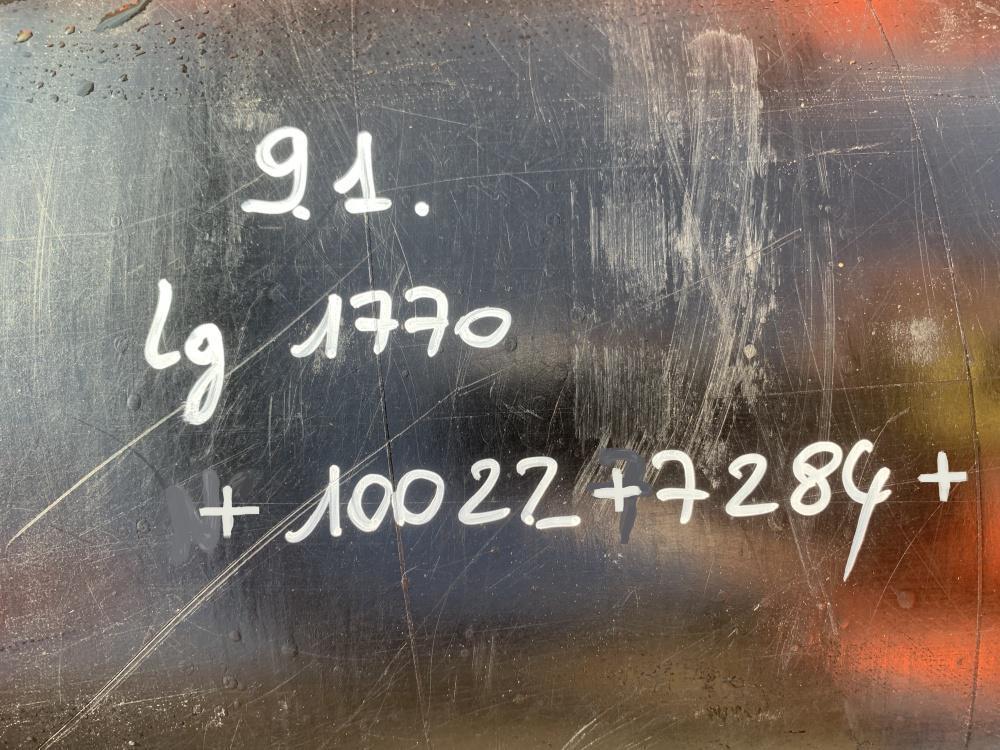 91.
lg 1770
+ 10022+77284+